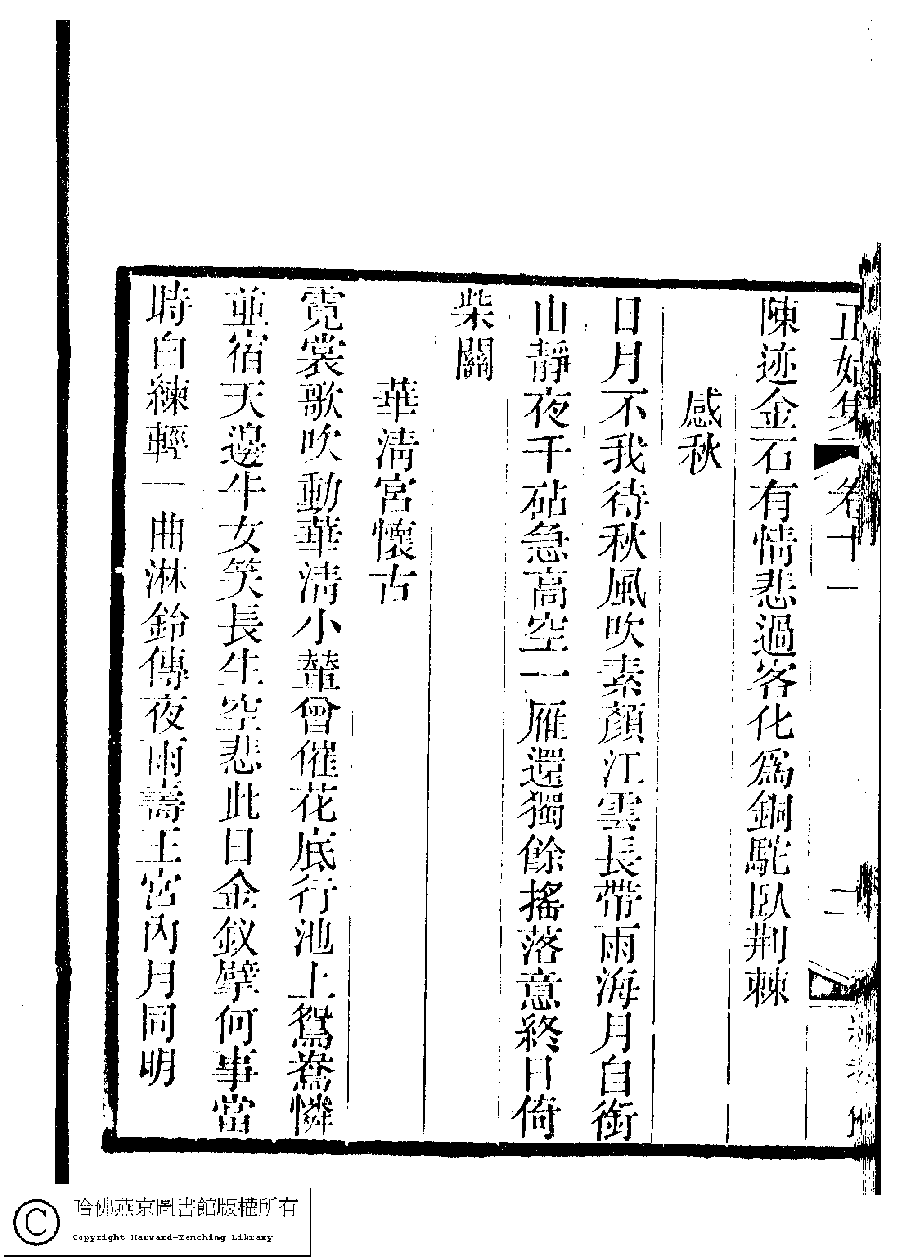 正始集 卷十一 二
陳迹金石有情悲過客化爲銅駝臥荆棘
感秋
日月不我待秋風吹素顏江雲長帶雨海月自銜
山靜夜千砧急高空一雁還獨餘搖落意終日倚
柴關
華淸宮懷古
霓裳歌吹動華淸小輦曾催花底行池上鴛鴦憐
並宿天邊牛女笑長生空悲此日金釵擘何事當
時白練輕一曲淋鈴傳夜雨壽王宮內月同明
哈佛燕京圖書館版權所有
Copyright Harvard-Yenching Library